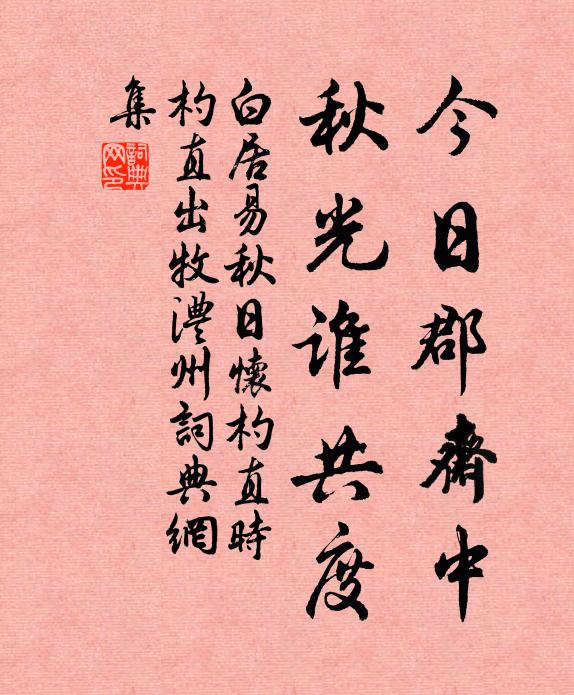 今日郡齋中
秋光誰共度
白居易秋日懷杓直時
杓直出牧澧州詞典網
集
詞典網印